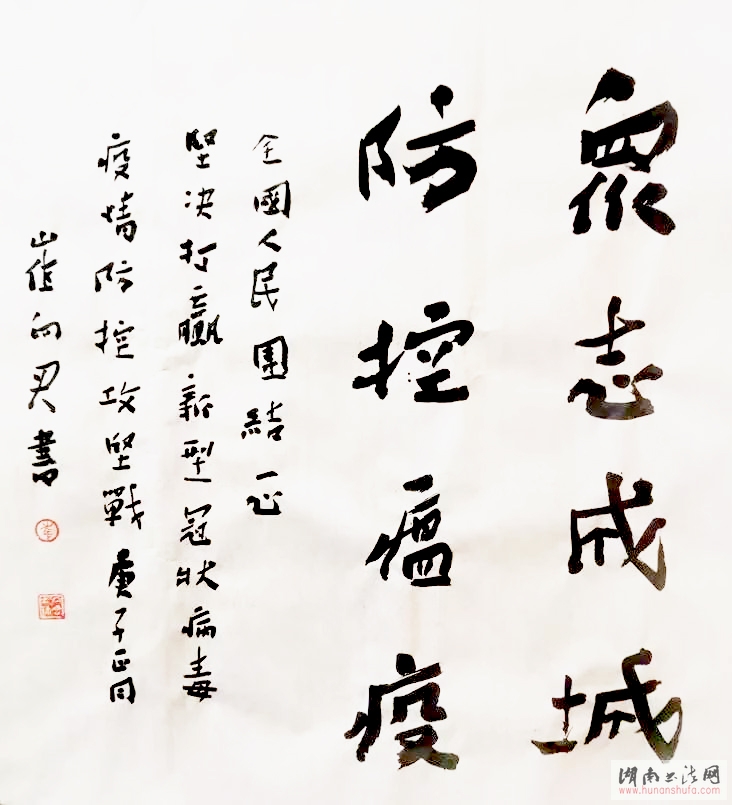 眾志成城
防控瘟疫
全國人民團結一心
堅决打贏新型冠狀病毒
疫情防控攻堅戰 庚子正月
崔向君書
湖南书法网
www.hunanshufa.com